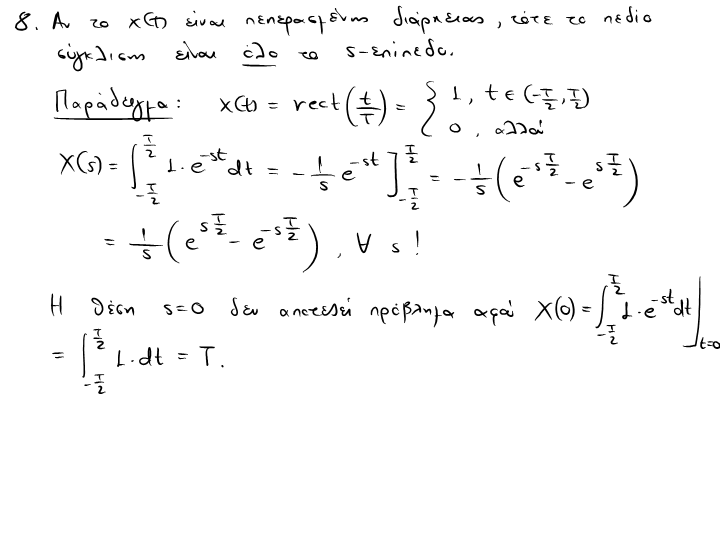 8. Αν το x(t) είναι πεπερασμένης διάρκειας, τότε το πεδίο
σύγκλισης είναι όλο το s-επίπεδο.
Παράδειγμα: x(t) = rect(t/T) = { 1, t ∈ (-T/2, T/2)
0, αλλού
X(s) = ∫_{-T/2}^{T/2} 1·e^{-st} dt = -1/s e^{-st} ]_{-T/2}^{T/2} = -1/s (e^{-sT/2} - e^{sT/2})
= 1/s (e^{sT/2} - e^{-sT/2}), ∀ s!
Η θέση s=0 δεν αποτελεί πρόβλημα αφού X(0) = ∫_{-T/2}^{T/2} 1·e^{-st} dt |_{t=0}
= ∫_{-T/2}^{T/2} 1·dt = T.